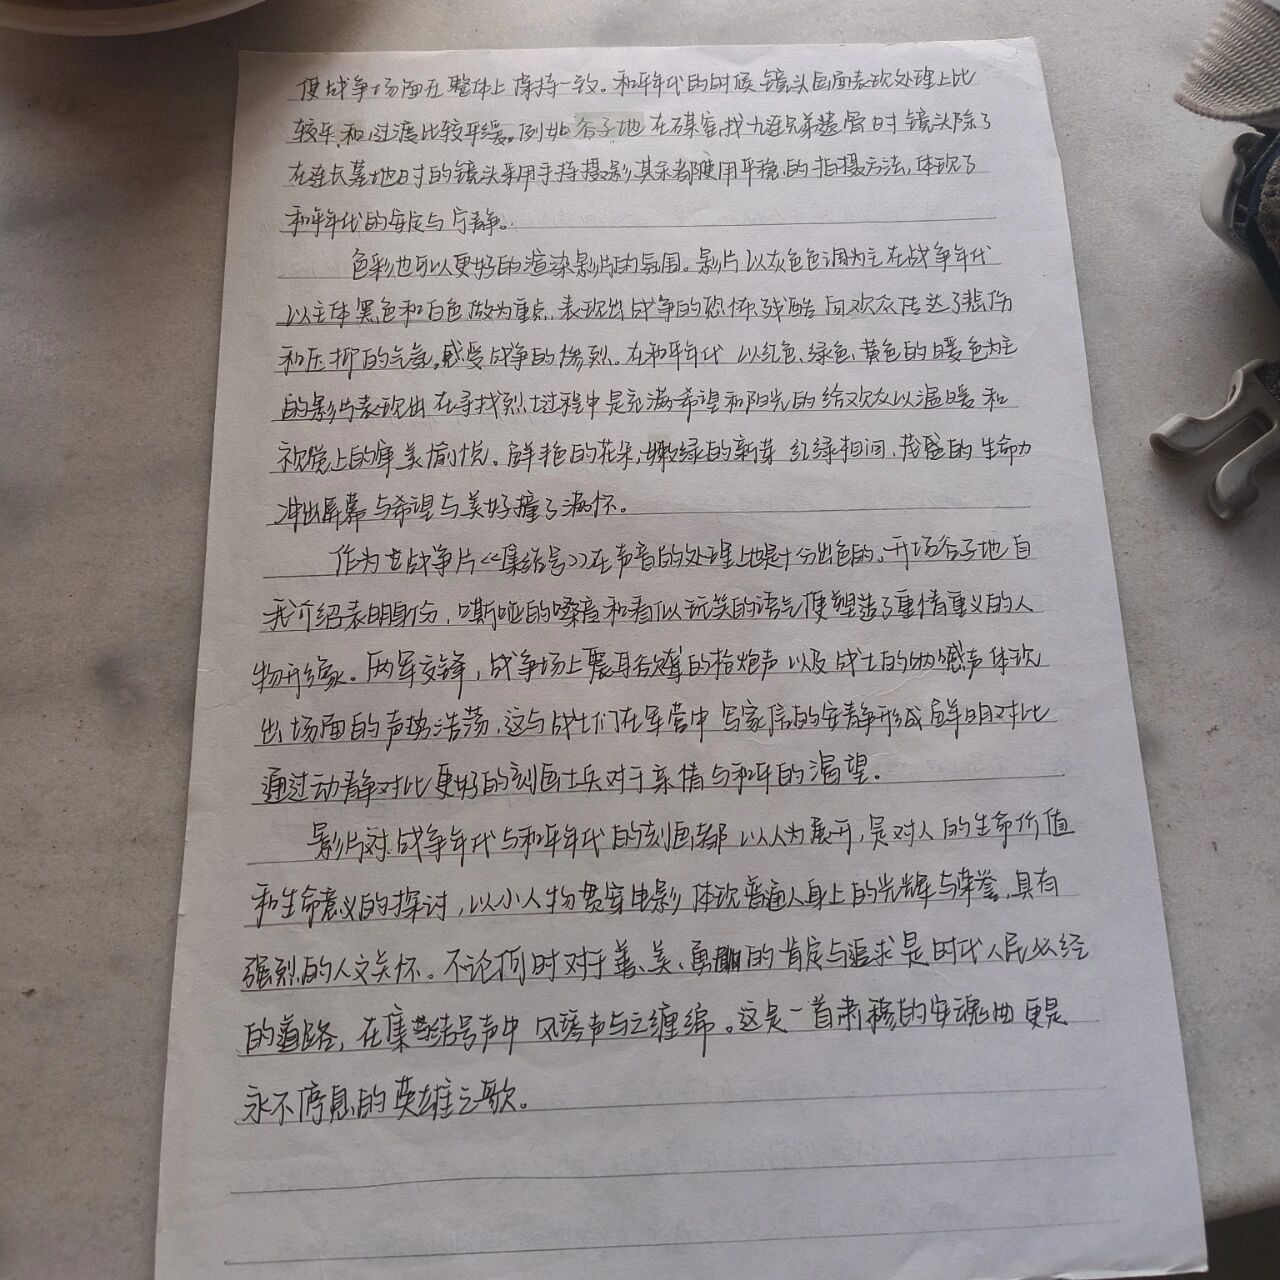 使战争场面在整体上保持一致。和平年代的时候镜头画面表现处理上比
较平和过渡比较平缓。例如谷子地在煤窑找九连兄弟遗骨时镜头除了
在连长墓地时的镜头采用手持摄影其余都使用平稳的拍摄方法，体现了
和平年代的安定与宁静。
色彩也可以更好的渲染影片的氛围。影片以灰色色调为主在战争年代
以主体黑色和白色做为重点，表现出战争的恐怖残酷向观众传达了悲伤
和压抑的气氛。感受战争的惨烈。在和平年代 以红色、绿色、黄色的暖色为主
的影片表现出在寻找烈士过程中是充满希望和阳光的给观众以温暖和
视觉上的审美愉悦。鲜艳的花朵，嫩绿的新芽 红绿相间，茂盛的生命力
冲出屏幕与希望与美好撞了满怀。
作为 战争片《集结号》在声音的处理上也是十分出色的。开场谷子地自
我介绍表明身份，嘶哑的嗓音和看似玩笑的语气便塑造了重情重义的人
物形象。两军交锋，战争场上震耳欲聋的枪炮声以及战士的呐喊声体现
出场面的声势浩荡，这与战士们在军营中写家信的安静形成鲜明对比
通过动静对比更好的刻画士兵对于亲情与和平的渴望。
影片对战争年代与和平年代的刻画都以人为展开，是对人的生命价值
和生命意义的探讨，以小人物贯穿电影 体现普通人身上的光辉与荣誉，具有
强烈的人文关怀。不论何时对于善、美、勇 的肯定与追求是时代人民必经
的道路，在集结号声中 风琴声与之缠绵。这是一首肃穆的安魂曲更是
永不停息的英雄之歌。